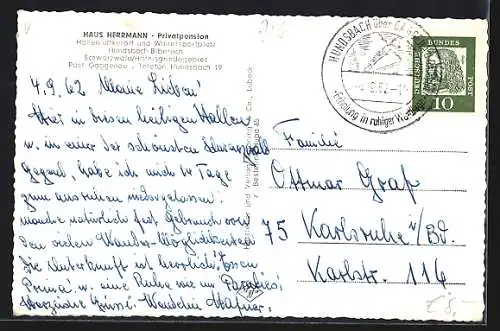 HAUS HERRMANN - Privatpension
Höhenluftkurort und Wintersportplatz
Hundsbach-Biberach
Schwarzwald/Hornisgrindegebiet
Post Gaggenau, Telefon: Hundsbach 19
4.9.62 Meine Lieben!
Hier in diesen heiligen Hallen
u. in einer der schönsten Schwarzwald
Gegend, habe ich mich 14 Tage
zum ausruhen niedergelassen.
mache natürlich fest Gebrauch von
den vielen Wander-Möglichkeiten
die Unterkunft ist herrlich! Essen
Prima u. eine Ruhe wie im Paradies!
Herzliche Grüsse
HUNDSBACH über
Erholung in ruhiger
DEUTSCHE BUNDESPOST
10
Familie
Ottmar Graf
75 Karlsruhe i/Bd.
Karlstr. 116